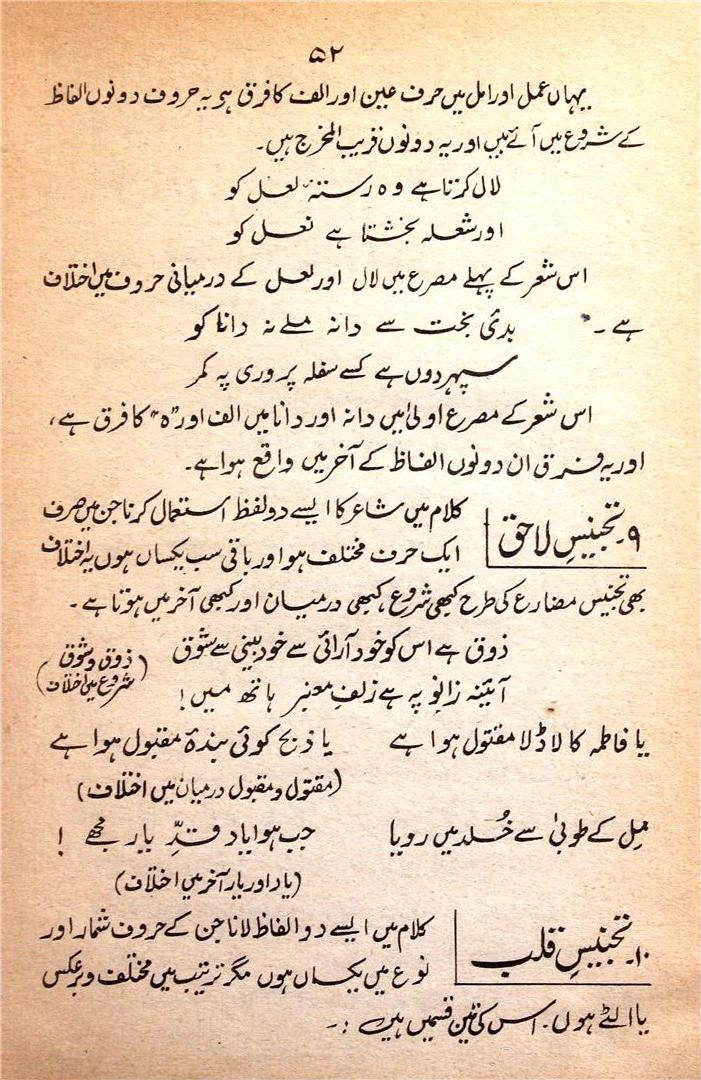 ۵۲
یہاں عمل اور امل میں حرف عین اور الف کا فرق ہے یہ حروف دونوں الفاظ
کے شروع میں آئے ہیں اور یہ دونوں قریب المخرج ہیں۔
لال کرتا ہے وہ رستہ لعل کو
اور شعلہ بخشتا ہے نعل کو
اس شعر کے پہلے مصرع میں لال اور لعل کے درمیانی حروف میں اختلاف
ہے ۔ بدئ بخت سے دانہ ملے نہ دانا کو
سپہر دوں ہے کسے سفلہ پروری پہ کمر
اس شعر کے مصرع اولیٰ میں دانہ اور دانا میں الف اور "ہ" کا فرق ہے،
اور یہ فرق ان دونوں الفاظ کے آخر میں واقع ہوا ہے۔
۹۔ تجنیسِ لاحق کلام میں شاعر کا ایسے دو لفظ استعمال کرنا جن میں صرف
ایک حرف مختلف ہو اور باقی سب یکساں ہوں یہ اختلاف
بھی تجنیس مضارع کی طرح کبھی شروع، کبھی درمیان اور کبھی آخر میں ہوتا ہے۔
ذوق ہے اس کو خود آرائی سے خود بینی سے شوق
آئینہ زانو پہ ہے زلفِ معنبر ہاتھ میں!
(ذوق و شوق
شروع میں اختلاف)
یا فاطمہ کا لاڈلا مقتول ہوا ہے یا ذبح کوئی بندۂ مقبول ہوا ہے
(مقتول و مقبول درمیان میں اختلاف)
مل کے طوبیٰ سے خُلد میں رویا جب ہوا یاد قدِّ یار مجھے !
(یاد اور یار آخر میں اختلاف)
۱۰۔ تجنیسِ قلب کلام میں ایسے دو الفاظ لانا جن کے حروف شمار اور
نوع میں یکساں ہوں مگر ترتیب میں مختلف و برعکس
یا الٹے ہوں۔ اس کی تین قسمیں ہیں :۔